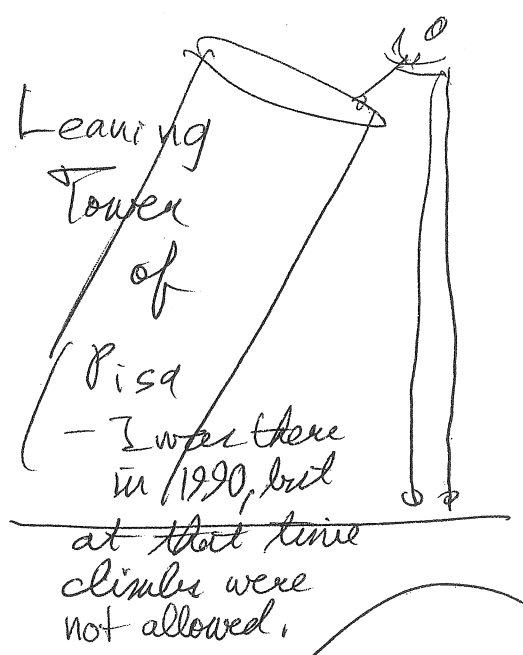 Leaning
Tower
of
Pisa
- I was there
in 1990, but
at that time
climbs were
not allowed.